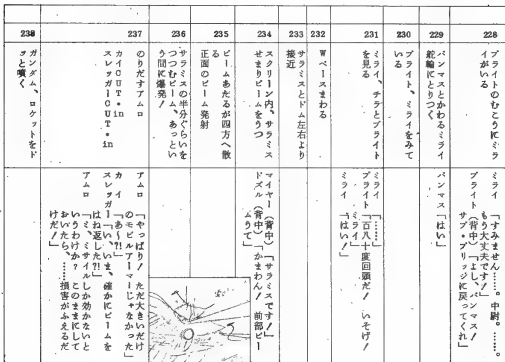 228
ブライトのむこうにミラ
イがいる
ミライ 「すみません……。中尉。……。
もう大丈夫です!」
ブライト(背中)「よし、バンマス!
サブ・ブリッジに戻ってくれ」
229
バンマスとかわるミライ
舵輪にとりつく
バンマス「はい」
230
ブライト、ミライをみて
いる
231
ミライ、チラとブライト
を見る
ミライ 「……」
ブライト「百八十度回頭だ! いそげ!
ミライ」
ミライ 「はい!」
232
Wベースまわる
233
サラミスとドム左右より
接近
234
スクリーン内、サラミス
せまりビームをうつ
マイヤー(背中)「サラミスです!」
ドズル(背中)「かまわん! 前部ビー
ムうて」
235
ビームあたるが四方へ散
正面のビーム発射
236
サラミスの半分ぐらいを
つつむビーム、あっとい
う間に爆発!
237
のりだすアムロ
カイCUT・in
スレッガーCUT・in
アムロ 「やっぱり! ただ大きいだけ
のモビルアーマーじゃなかった」
カイ 「あ〜?!」
スレッガー「い、いま、確かにビームを
はね返した?!」
アムロ 「ミ、ミサイルしか効かないと
いうわけか? このままにして
おいたら、……損害がふえるだ
けだ!」
238
ガンダム、ロケットをド
ッと噴く